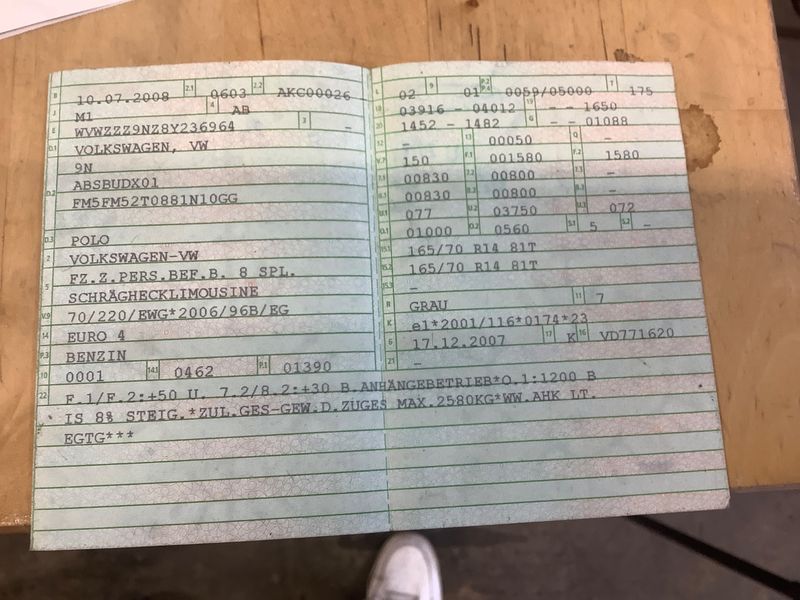 B 10.07.2008 2.1 0603 2.2 AKC00026
J M1 4 AB
E WVWZZZ9NZ8Y236964 3 -
D.1 VOLKSWAGEN, VW
9N
D.2 ABSBUDX01
FM5FM52T0881N10GG
D.3 POLO
2 VOLKSWAGEN-VW
5 FZ.Z.PERS.BEF.B. 8 SPL.
SCHRÄGHECKLIMOUSINE
V.9 70/220/EWG*2006/96B/EG
14 EURO 4
P.3 BENZIN
10 0001 14.1 0462 P.1 01390
22 F.1/F.2:+50 U. 7.2/8.2:+30 B.ANHÄNGEBETRIEB*O.1:1200 B
IS 8% STEIG.*ZUL.GES-GEW.D.ZUGES MAX.2580KG*WW.AHK LT.
EGTG***
L 02 9 01 P.2 P.4 0059/05000 T 175
18 03916 - 04012 19 - - 1650
20 1452 - 1482 G - - 01088
12 - 13 00050 Q -
V.7 150 F.1 001580 F.2 1580
7.1 00830 7.2 00800 7.3 -
8.1 00830 8.2 00800 8.3 -
U.1 077 U.2 03750 U.3 072
O.1 01000 O.2 0560 S.1 5 S.2 -
15.1 165/70 R14 81T
15.2 165/70 R14 81T
15.3 -
R GRAU 11 7
K e1*2001/116*0174*23
6 17.12.2007 17 K 16 VD771620
21 -